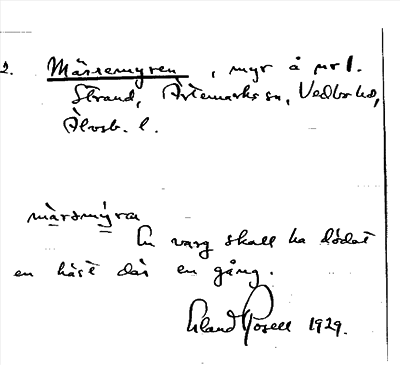 2. Märsemyren, myr å nr 1.
Strand, Ärtemarks sn, Vedbo hd,
Älvsb. l.
màrsmýra
En varg skall ha dödat
en häst där en gång.
Erland Rosell 1929.